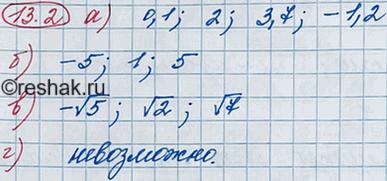 13.2 а) 0,1; 2; 3,7; -1,2
б) -5; 1; 5
©reshak.ru
в) -√5; √2; √7
г) невозможно.